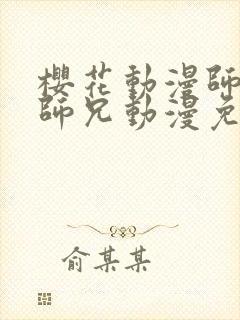 櫻花動漫師
師兄動漫免
俞某某